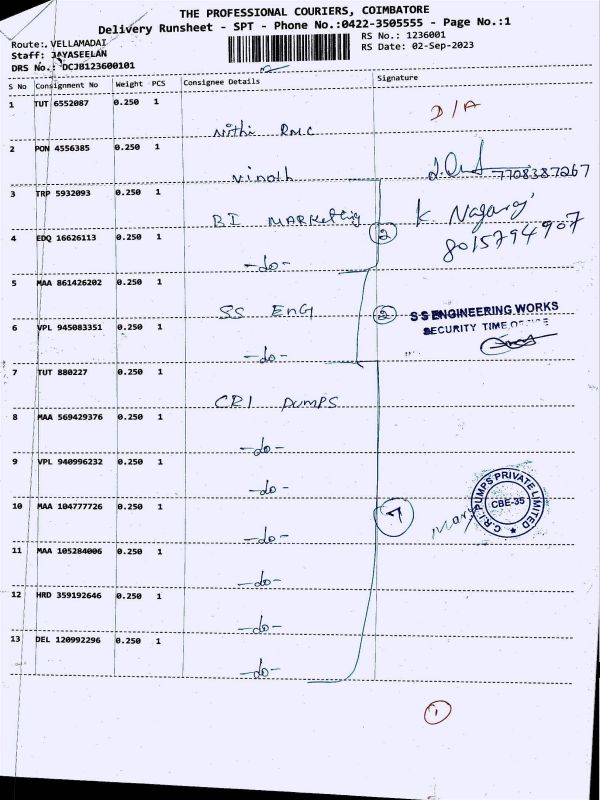 THE PROFESSIONAL COURIERS, COIMBATORE
Delivery Runsheet - SPT - Phone No.:0422-3505555 - Page No.:1
Route: VELLAMADAI
RS No.: 1236001
Staff: JAYASEELAN
RS Date: 02-Sep-2023
DRS No.: DCJB123600101
S No Consignment No Weight PCS Consignee Details Signature
1 TUT 6552087 0.250 1 D/A
Nithi RMC
2 PON 4556385 0.250 1
Vinoth 7708387267
3 TRP 5932093 0.250 1
BI Marketing
4 EDQ 16626113 0.250 1 2 K. Nagaraj
8015794907
-do-
5 MAA 861426202 0.250 1
SS ENG 2 S S ENGINEERING WORKS
6 VPL 945083351 0.250 1 SECURITY TIME OFFICE
-do-
7 TUT 880227 0.250 1
CRI PUMPS
8 MAA 569429376 0.250 1
-do-
9 VPL 940996232 0.250 1
-do-
10 MAA 104777726 0.250 1 7
C.R.I. PUMPS PRIVATE LIMITED
CBE-35
-do-
11 MAA 105284006 0.250 1
-do-
12 HRD 359192646 0.250 1
-do-
13 DEL 120992296 0.250 1
-do-
1